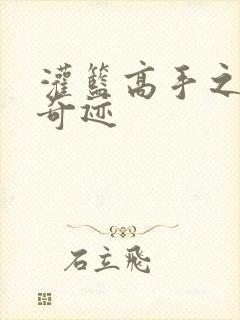 灌籃高手之
奇迹
石立飛